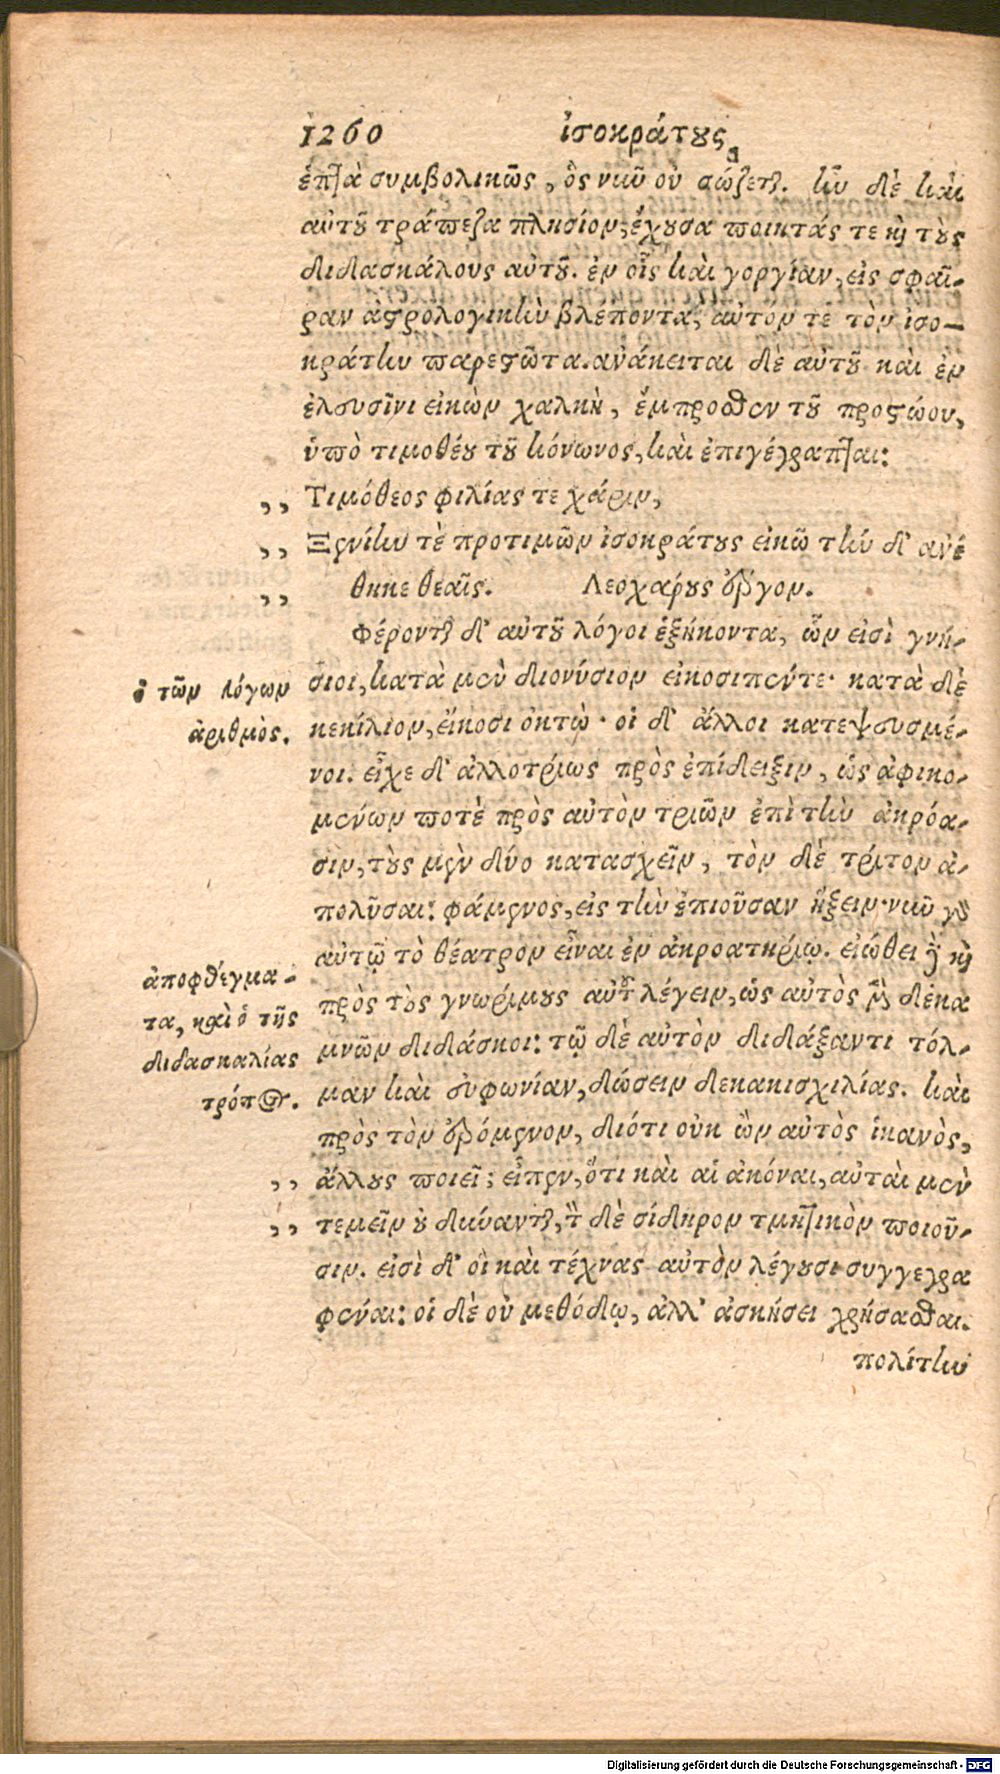 1260 ἰσοκράτους
ἑπτὰ συμβολικῶς, ὃς νῦν οὐ σώζεται. ἦν δὲ καὶ
αὐτοῦ τράπεζα πλησίον, ἔχουσα ποιητάς τε καὶ τοὺς
διδασκάλους αὐτοῦ. ἐν οἷς καὶ γοργίαν, εἰς σφαῖ-
ραν ἀστρολογικὴν βλέποντα, αὐτόν τε τὸν ἰσο-
κράτην παρεστῶτα. ἀνάκειται δὲ αὐτοῦ καὶ ἐν
ἐλευσῖνι εἰκὼν χαλκῆ, ἔμπροσθεν τοῦ προστώου,
ὑπὸ τιμοθέου τοῦ κόνωνος, καὶ ἐπιγέγραπται:
,, Τιμόθεος φιλίας τε χάριν,
,, Ξενίην τὲ προτιμῶν ἰσοκράτους εἰκῶ τὴν δ' ἀνέ
,, θηκε θεαῖς. Λεοχάρους ἔργον.
Φέρονται δ' αὐτοῦ λόγοι ἑξήκοντα, ὧν εἰσὶ γνή-
ὁ τῶν λόγων
ἀριθμὸς.
σιοι, κατὰ μὲν διονύσιον εἰκοσιπέντε· κατὰ δὲ
κεκίλιον, εἴκοσι ὀκτὼ· οἱ δ' ἄλλοι κατεψευσμέ-
νοι. εἶχε δ' ἀλλοτρίως πρὸς ἐπίδειξιν, ὡς ἀφικο-
μένων ποτὲ πρὸς αὐτὸν τριῶν ἐπὶ τὴν ἀκρόα-
σιν, τοὺς μὲν δύο κατασχεῖν, τὸν δὲ τρίτον ἀ-
πολῦσαι: φάμενος, εἰς τὴν ἐπιοῦσαν ἥξειν· νῦν γὰρ
αὐτῷ τὸ θέατρον εἶναι ἐν ἀκροατηρίῳ. εἰώθει δὲ καὶ
ἀποφθέγμα-
τα, καὶ ὁ τῆς
διδασκαλίας
τρόπος.
πρὸς τοὺς γνωρίμους αὐτοῦ λέγειν, ὡς αὐτὸς μὲν δέκα
μνῶν διδάσκοι: τῷ δὲ αὐτὸν διδάξαντι τόλ-
μαν καὶ εὐφωνίαν, δώσειν δεκακισχιλίας. καὶ
πρὸς τὸν ἐρόμενον, διότι οὐκ ὢν αὐτὸς ἱκανὸς,
,, ἄλλους ποιεῖ; εἶπεν, ὅτι καὶ αἱ ἀκόναι, αὐταὶ μὲν
,, τεμεῖν οὐ δύνανται, τὸν δὲ σίδηρον τμητικὸν ποιοῦ-
σιν. εἰσὶ δ' οἳ καὶ τέχνας αὐτὸν λέγουσι συγγεγρα
φέναι: οἱ δὲ οὐ μεθόδῳ, ἀλλ' ἀσκήσει χρήσασθαι.
πολίτην
Digitalisierung gefördert durch die Deutsche Forschungsgemeinschaft - DFG